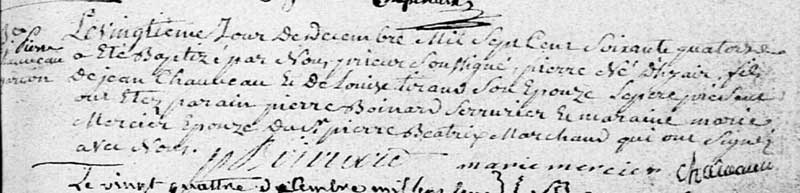 Bp.
pierre
chauveau
garcon
Le vingtieme Jour De decembre Mil Sept Cent Soixante quatorze
a Eté Baptizé par Nous, prieur Soussigné, pierre Né D'hyair, fils
De jean Chauveau Et De Louise tiraud Son Epouze Le pere present
ont Etez parain pierre Boinard Serrurier Et maraine marie
Mercier Epouze du Sr. pierre Beatrix Marchand qui ont Signez
avec Nous.
marie mercier chauveau
Le vingt quattre decembre mil